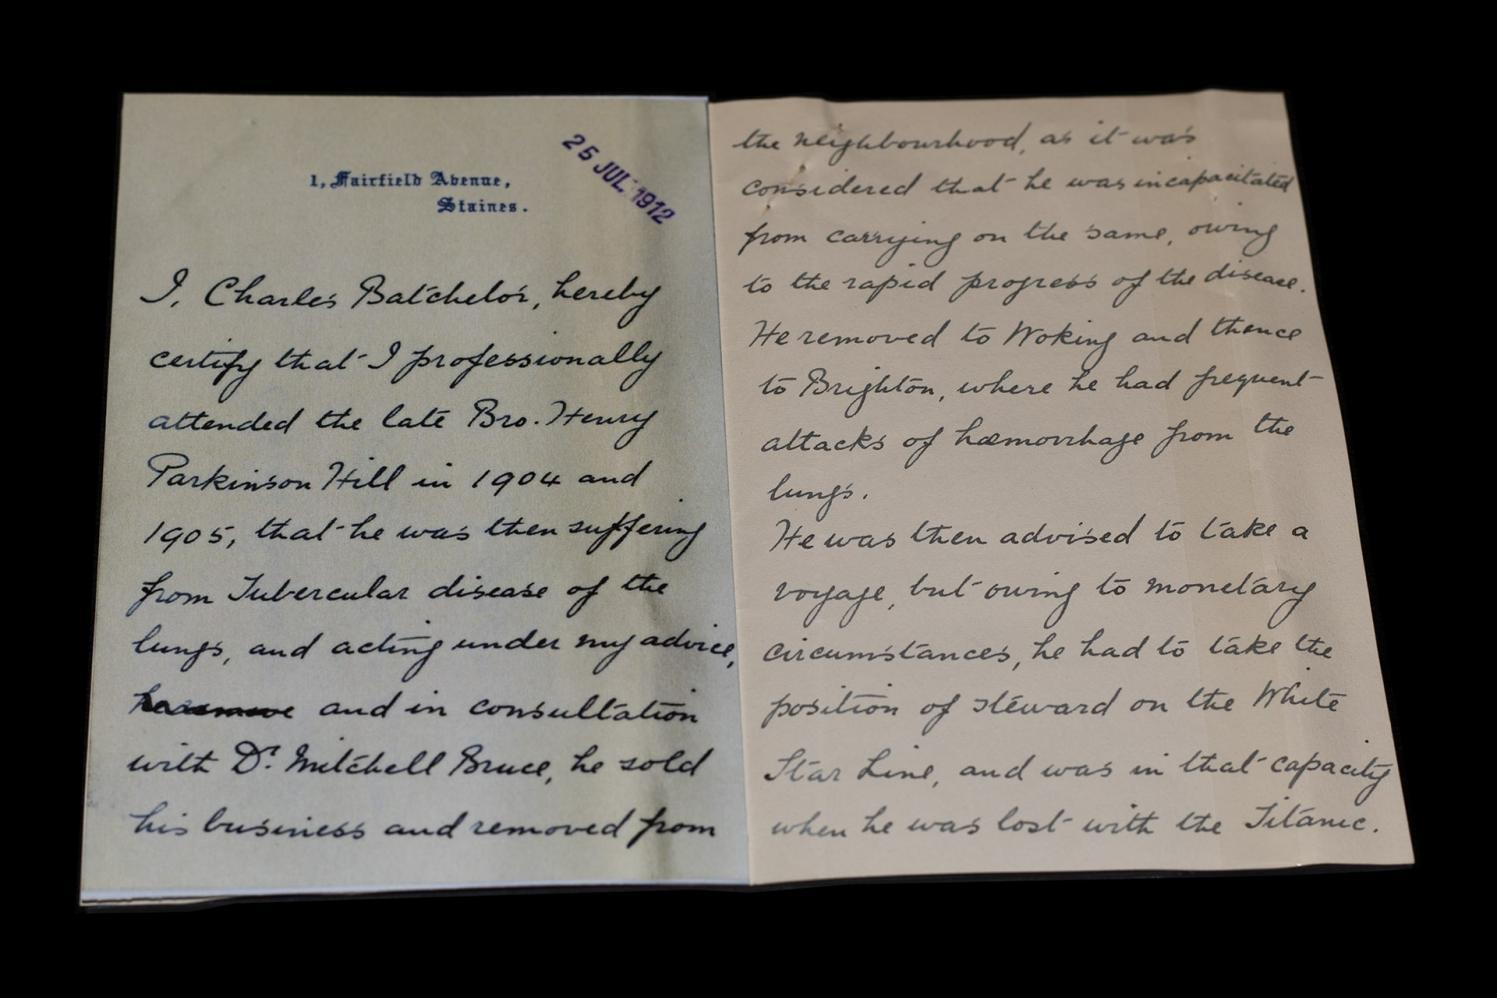 1, Fairfield Avenue,
Staines.
25 JUL. 1912
I, Charles Batchelor, hereby
certify that I professionally
attended the late Bro. Henry
Parkinson Hill in 1904 and
1905, that he was then suffering
from Tubercular disease of the
lungs, and acting under my advice,
and in consultation
with Dr. Mitchell Bruce, he sold
his business and removed from
the neighbourhood, as it was
considered that he was incapacitated
from carrying on the same, owing
to the rapid progress of the disease.
He removed to Woking and thence
to Brighton, where he had frequent
attacks of hæmorrhage from the
lungs.
He was then advised to take a
voyage, but owing to monetary
circumstances, he had to take the
position of steward on the White
Star Line, and was in that capacity
when he was lost with the Titanic.